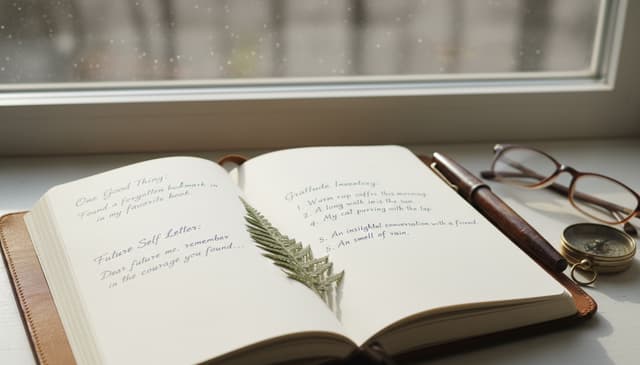 One Good Thing
Found a forgotten bookmark in
in my favorite book.
Future Self Letter:
Dear future me, remember
in the courage you found...
Gratitude Inventory
1. Warm cup coffee this morning.
2. A long walk in is the sun.
4. My cat purring with the lap.
5. An insightful conversation with a friend
5. An smell of rain.